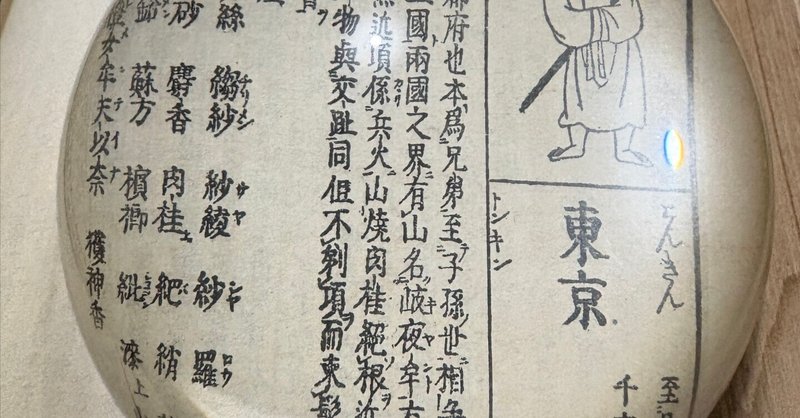 とんきん　至
東京　千
トンキン
府也本爲兄弟至子孫世相
國兩國之界有山名岐夜牟
近項係兵火山燒肉桂絕根近
物與交趾同但不剃項而束髮
絲　縐紗　紗綾　紗　羅
砂　麝香　肉桂　綃
蘇方　檳榔　漆
牟夫以奈　獲神香